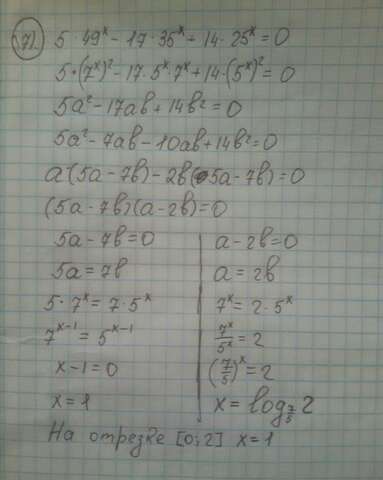 7). 5 · 49ˣ - 17 · 35ˣ + 14 · 25ˣ = 0
5 · (7ˣ)² - 17 · 5ˣ · 7ˣ + 14 · (5ˣ)² = 0
5a² - 17ab + 14b² = 0
5a² - 7ab - 10ab + 14b² = 0
a(5a - 7b) - 2b(5a - 7b) = 0
(5a - 7b)(a - 2b) = 0
5a - 7b = 0
5a = 7b
5 · 7ˣ = 7 · 5ˣ
7ˣ⁻¹ = 5ˣ⁻¹
x - 1 = 0
x = 1
a - 2b = 0
a = 2b
7ˣ = 2 · 5ˣ
7ˣ/5ˣ = 2
(7/5)ˣ = 2
x = log_(7/5) 2
На отрезке [0; 2] x = 1